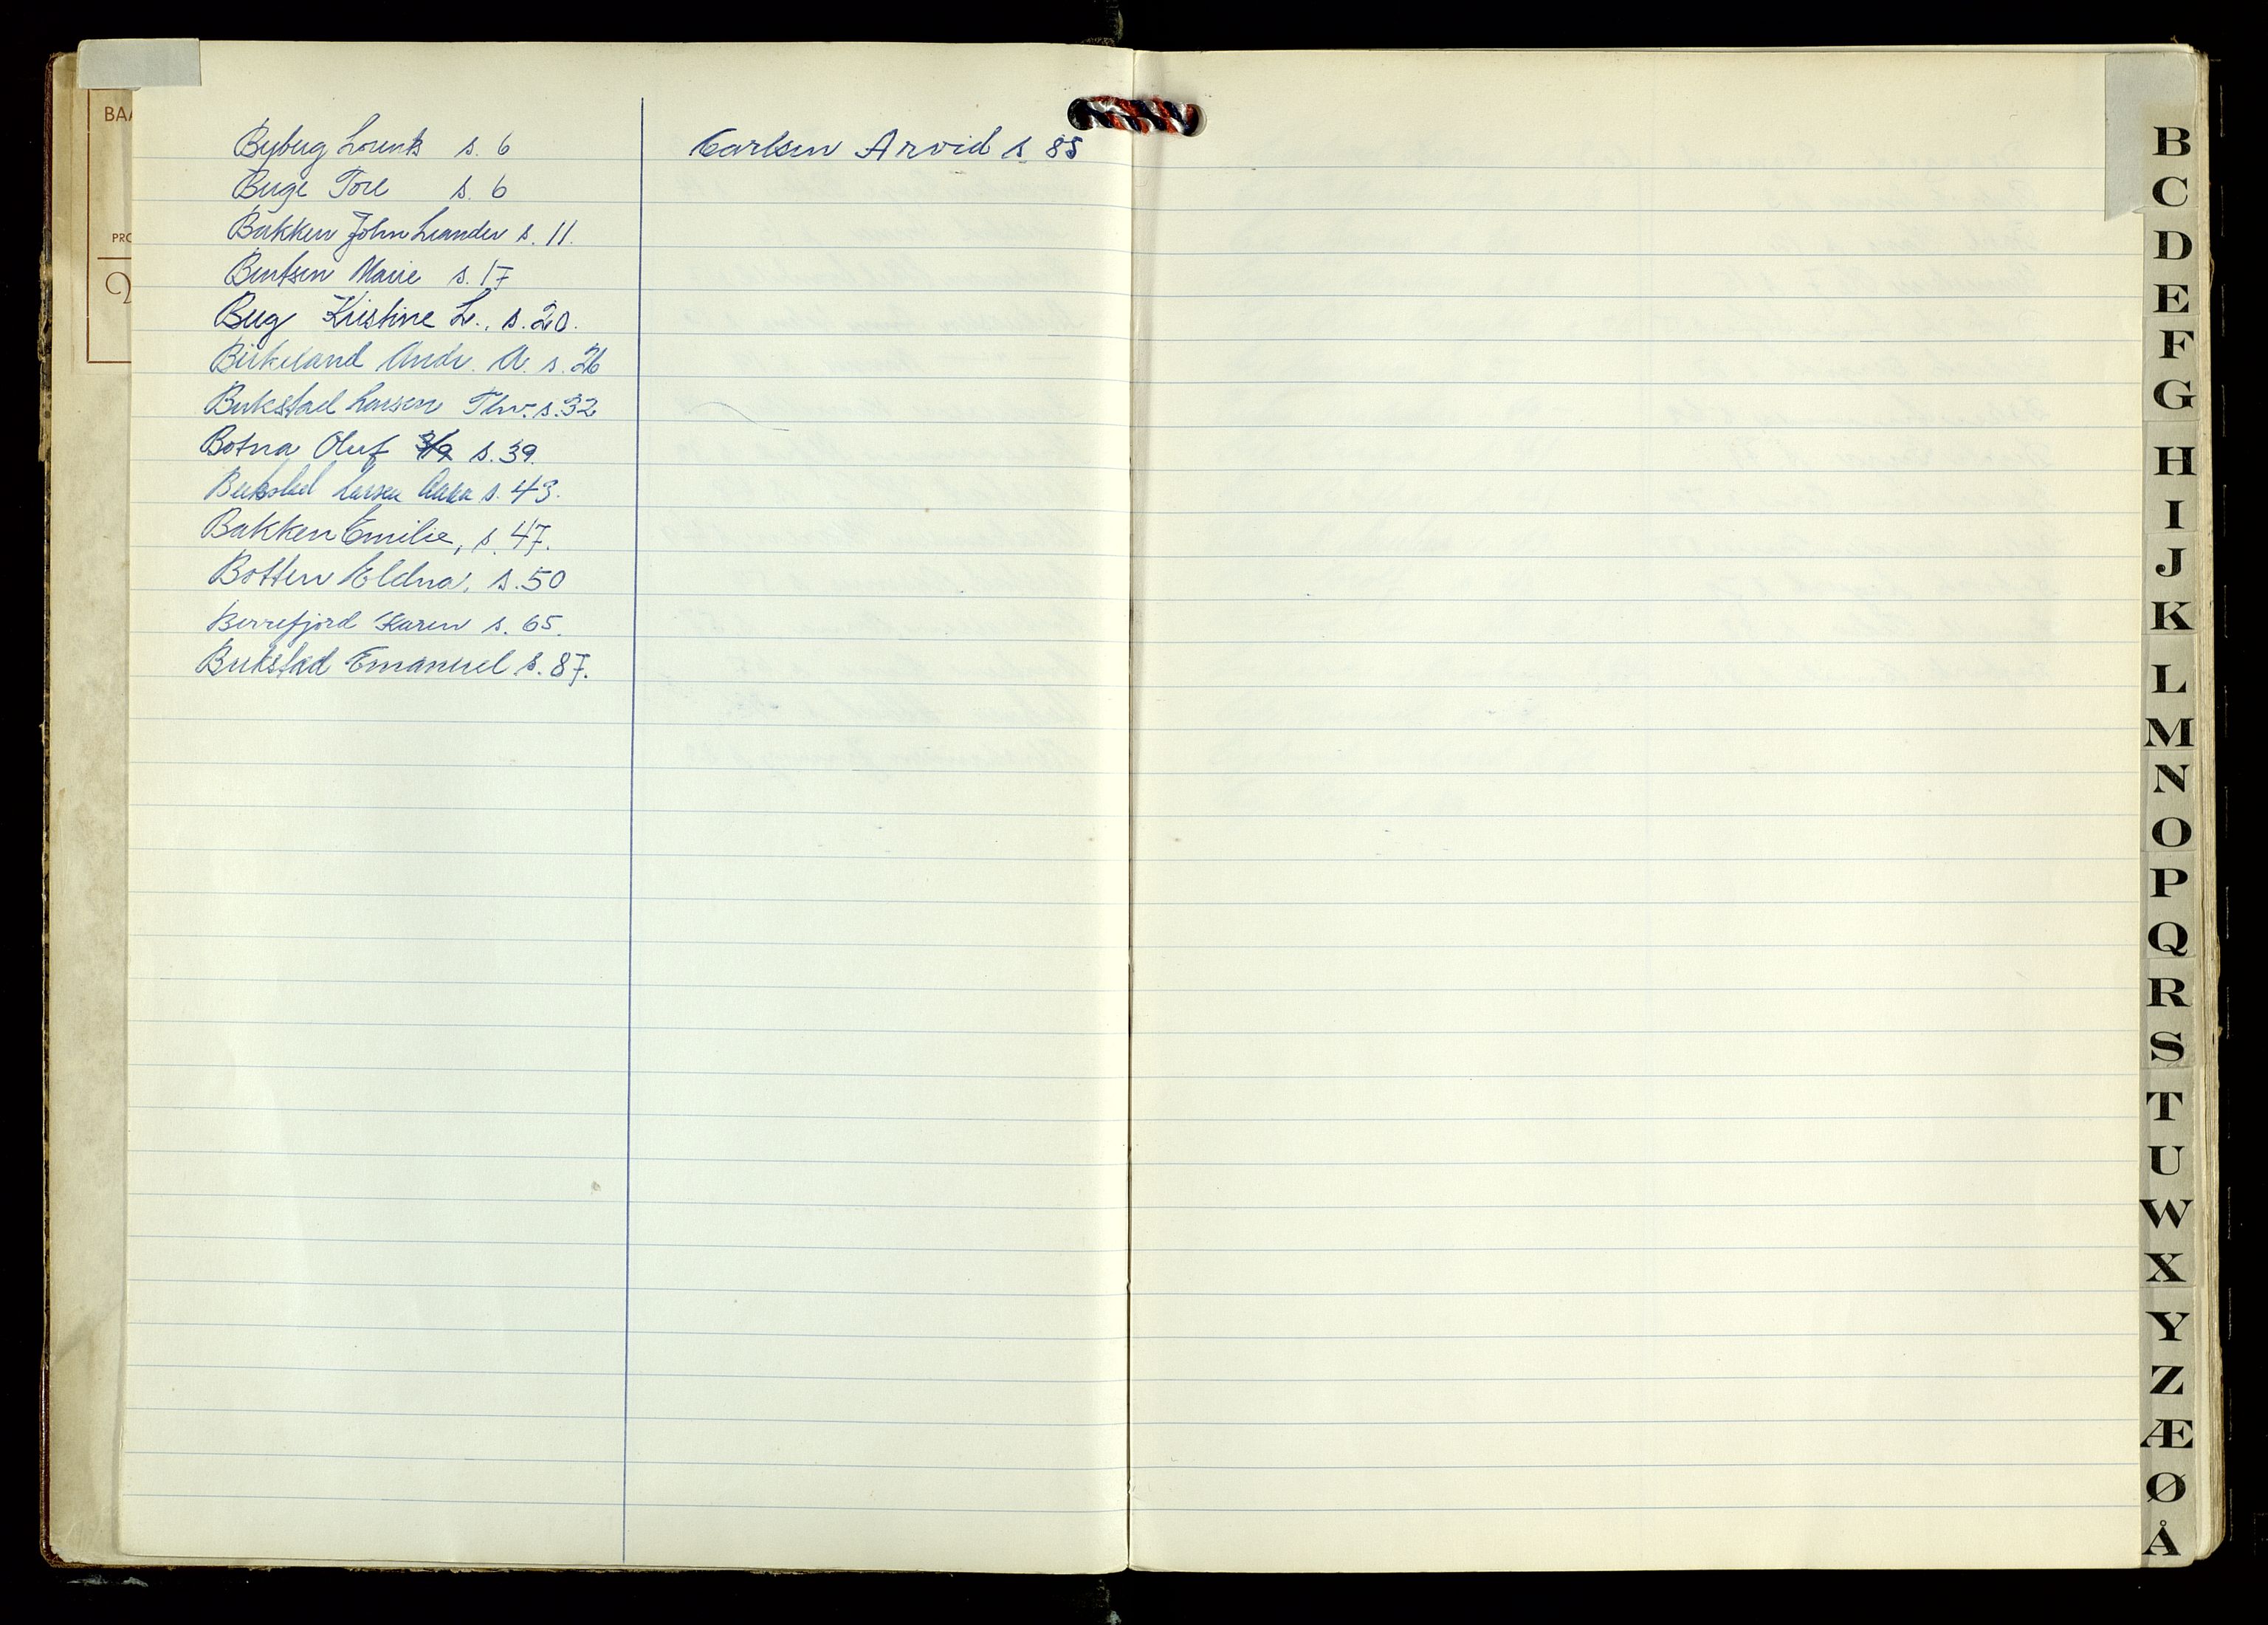 BAA
PRO
Byberg Lorents s. 6
Berge Tore s. 6
Bakken John Leander s. 11.
Berntsen Marie s. 17
Berg Kristine L., s. 20.
Birkeland Andr. A. s. 26
Birkstad Larsen Thv. s. 32
Botna Oluf s. 39.
Birkstad Larsen Anna s. 43.
Bakken Emilie, s. 47.
Botten Eldna, s. 50
Berrefjord Karen s. 65.
Birkstad Emanuel s. 87.
Carlsen Arvid s. 85
B
C
D
E
F
G
H
I
J
K
L
M
N
O
P
Q
R
S
T
U
W
X
Y
Z
Æ
Ø
Å